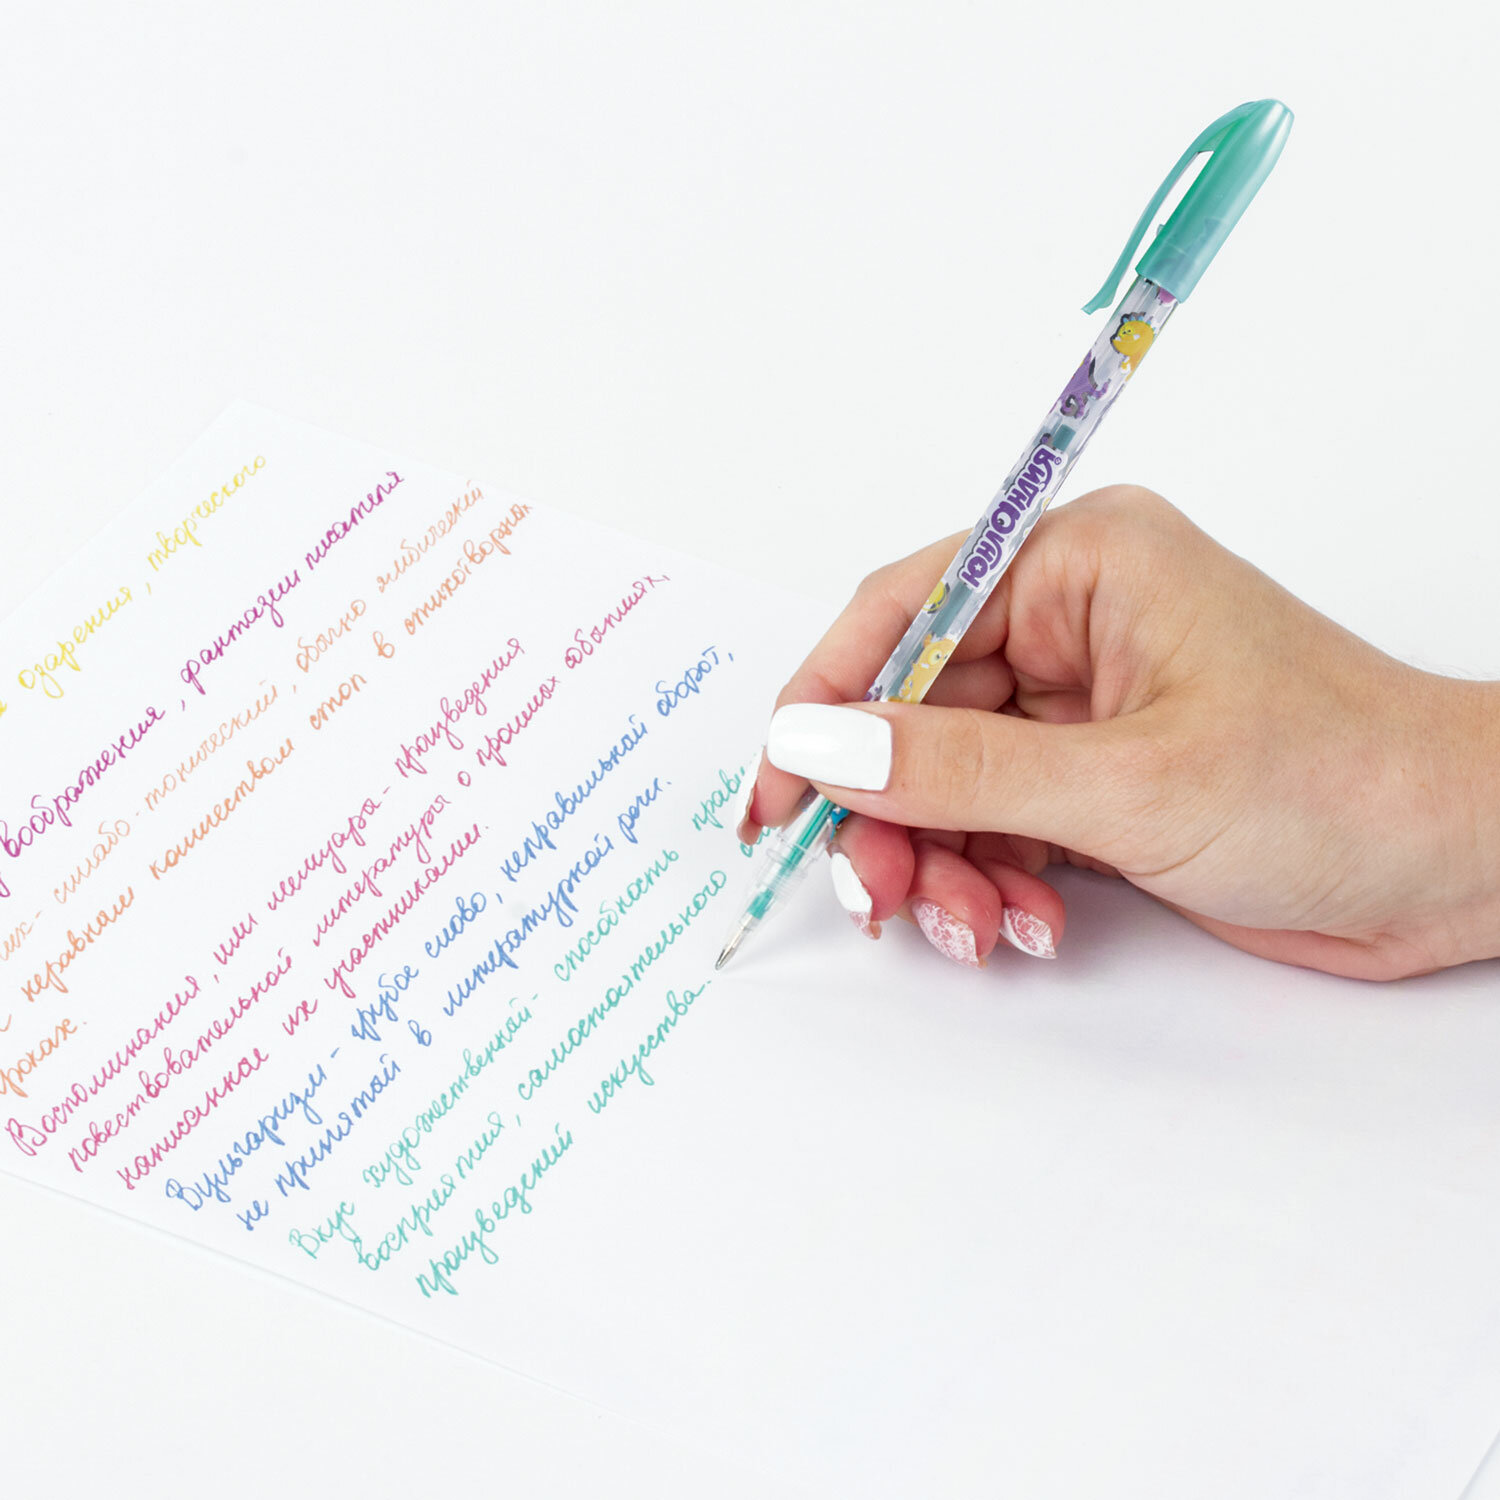 озарения, творческого
воображения, фантазии писателя
слабо-тонический, обычно ямбический
неравным количеством стоп в стихотворных
строках.
Воспоминания, или мемуары - произведения
повествовательной литературы о прошлых событиях,
написанное их участниками.
Вульгаризм - грубое слово, неправильный оборот,
не принятый в литературной речи.
Вкус художественный - способность прави
восприятия, самостоятельного
произведений искусства.
ЮНЛАНДИЯ